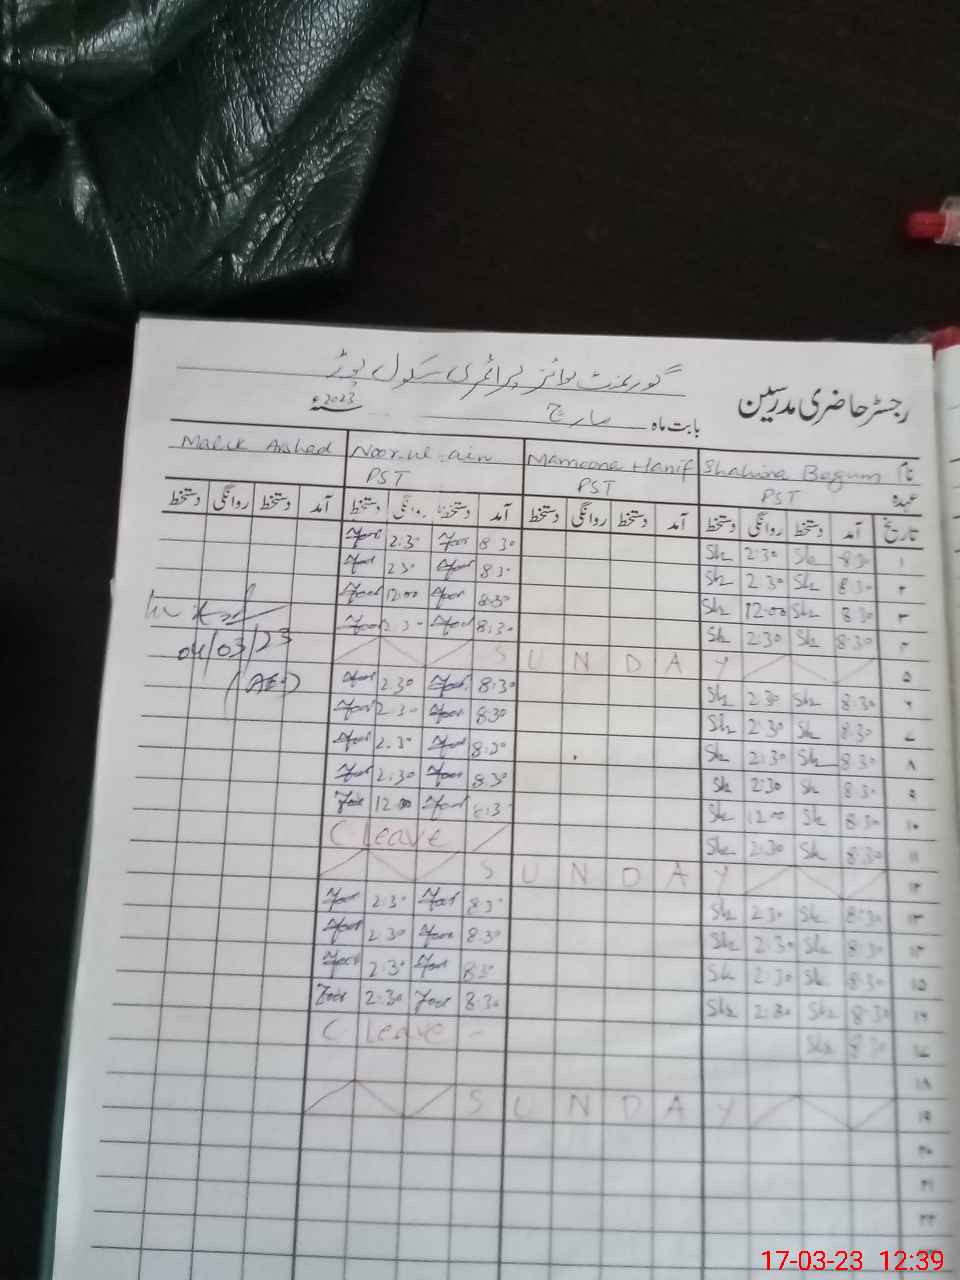 گورنمنٹ بوائز پرائمری سکول بوڑ
رجسٹر حاضری مدرسین
بابت ماہ مارچ 2023ء
نام Shahina Begum Mamoona Hanif Noor-ul-ain Malik Arshad
عہدہ PST PST PST
تاریخ آمد دستخط روانگی دستخط آمد دستخط روانگی دستخط آمد دستخط روانگی دستخط آمد دستخط روانگی دستخط
۱ 8:30 Sh 2:30 Sh 8:30 Noor 2:30 Noor
۲ 8:30 Sh 2:30 Sh 8:30 Noor 2:30 Noor
۳ 8:30 Sh 12:00 Sh 8:30 Noor 12:00 Noor
۴ 8:30 Sh 2:30 Sh 8:30 Noor 2:30 Noor
04/03/23
۵ SUNDAY
(AEO)
۶ 8:30 Sh 2:30 Sh 8:30 Noor 2:30 Noor
۷ 8:30 Sh 2:30 Sh 8:30 Noor 2:30 Noor
۸ 8:30 Sh 2:30 Sh 8:30 Noor 2:30 Noor
۹ 8:30 Sh 2:30 Sh 8:30 Noor 2:30 Noor
۱۰ 8:30 Sh 12:00 Sh 8:30 Noor 12:00 Noor
۱۱ 8:30 Sh 2:30 Sh C Leave
۱۲ SUNDAY
۱۳ 8:30 Sh 2:30 Sh 8:30 Noor 2:30 Noor
۱۴ 8:30 Sh 2:30 Sh 8:30 Noor 2:30 Noor
۱۵ 8:30 Sh 2:30 Sh 8:30 Noor 2:30 Noor
۱۶ 8:30 Sh 2:30 Sh 8:30 Noor 2:30 Noor
۱۷ 8:30 Sh C Leave
۱۸
۱۹ SUNDAY
۲۰
۲۱
۲۲
17-03-23 12:39